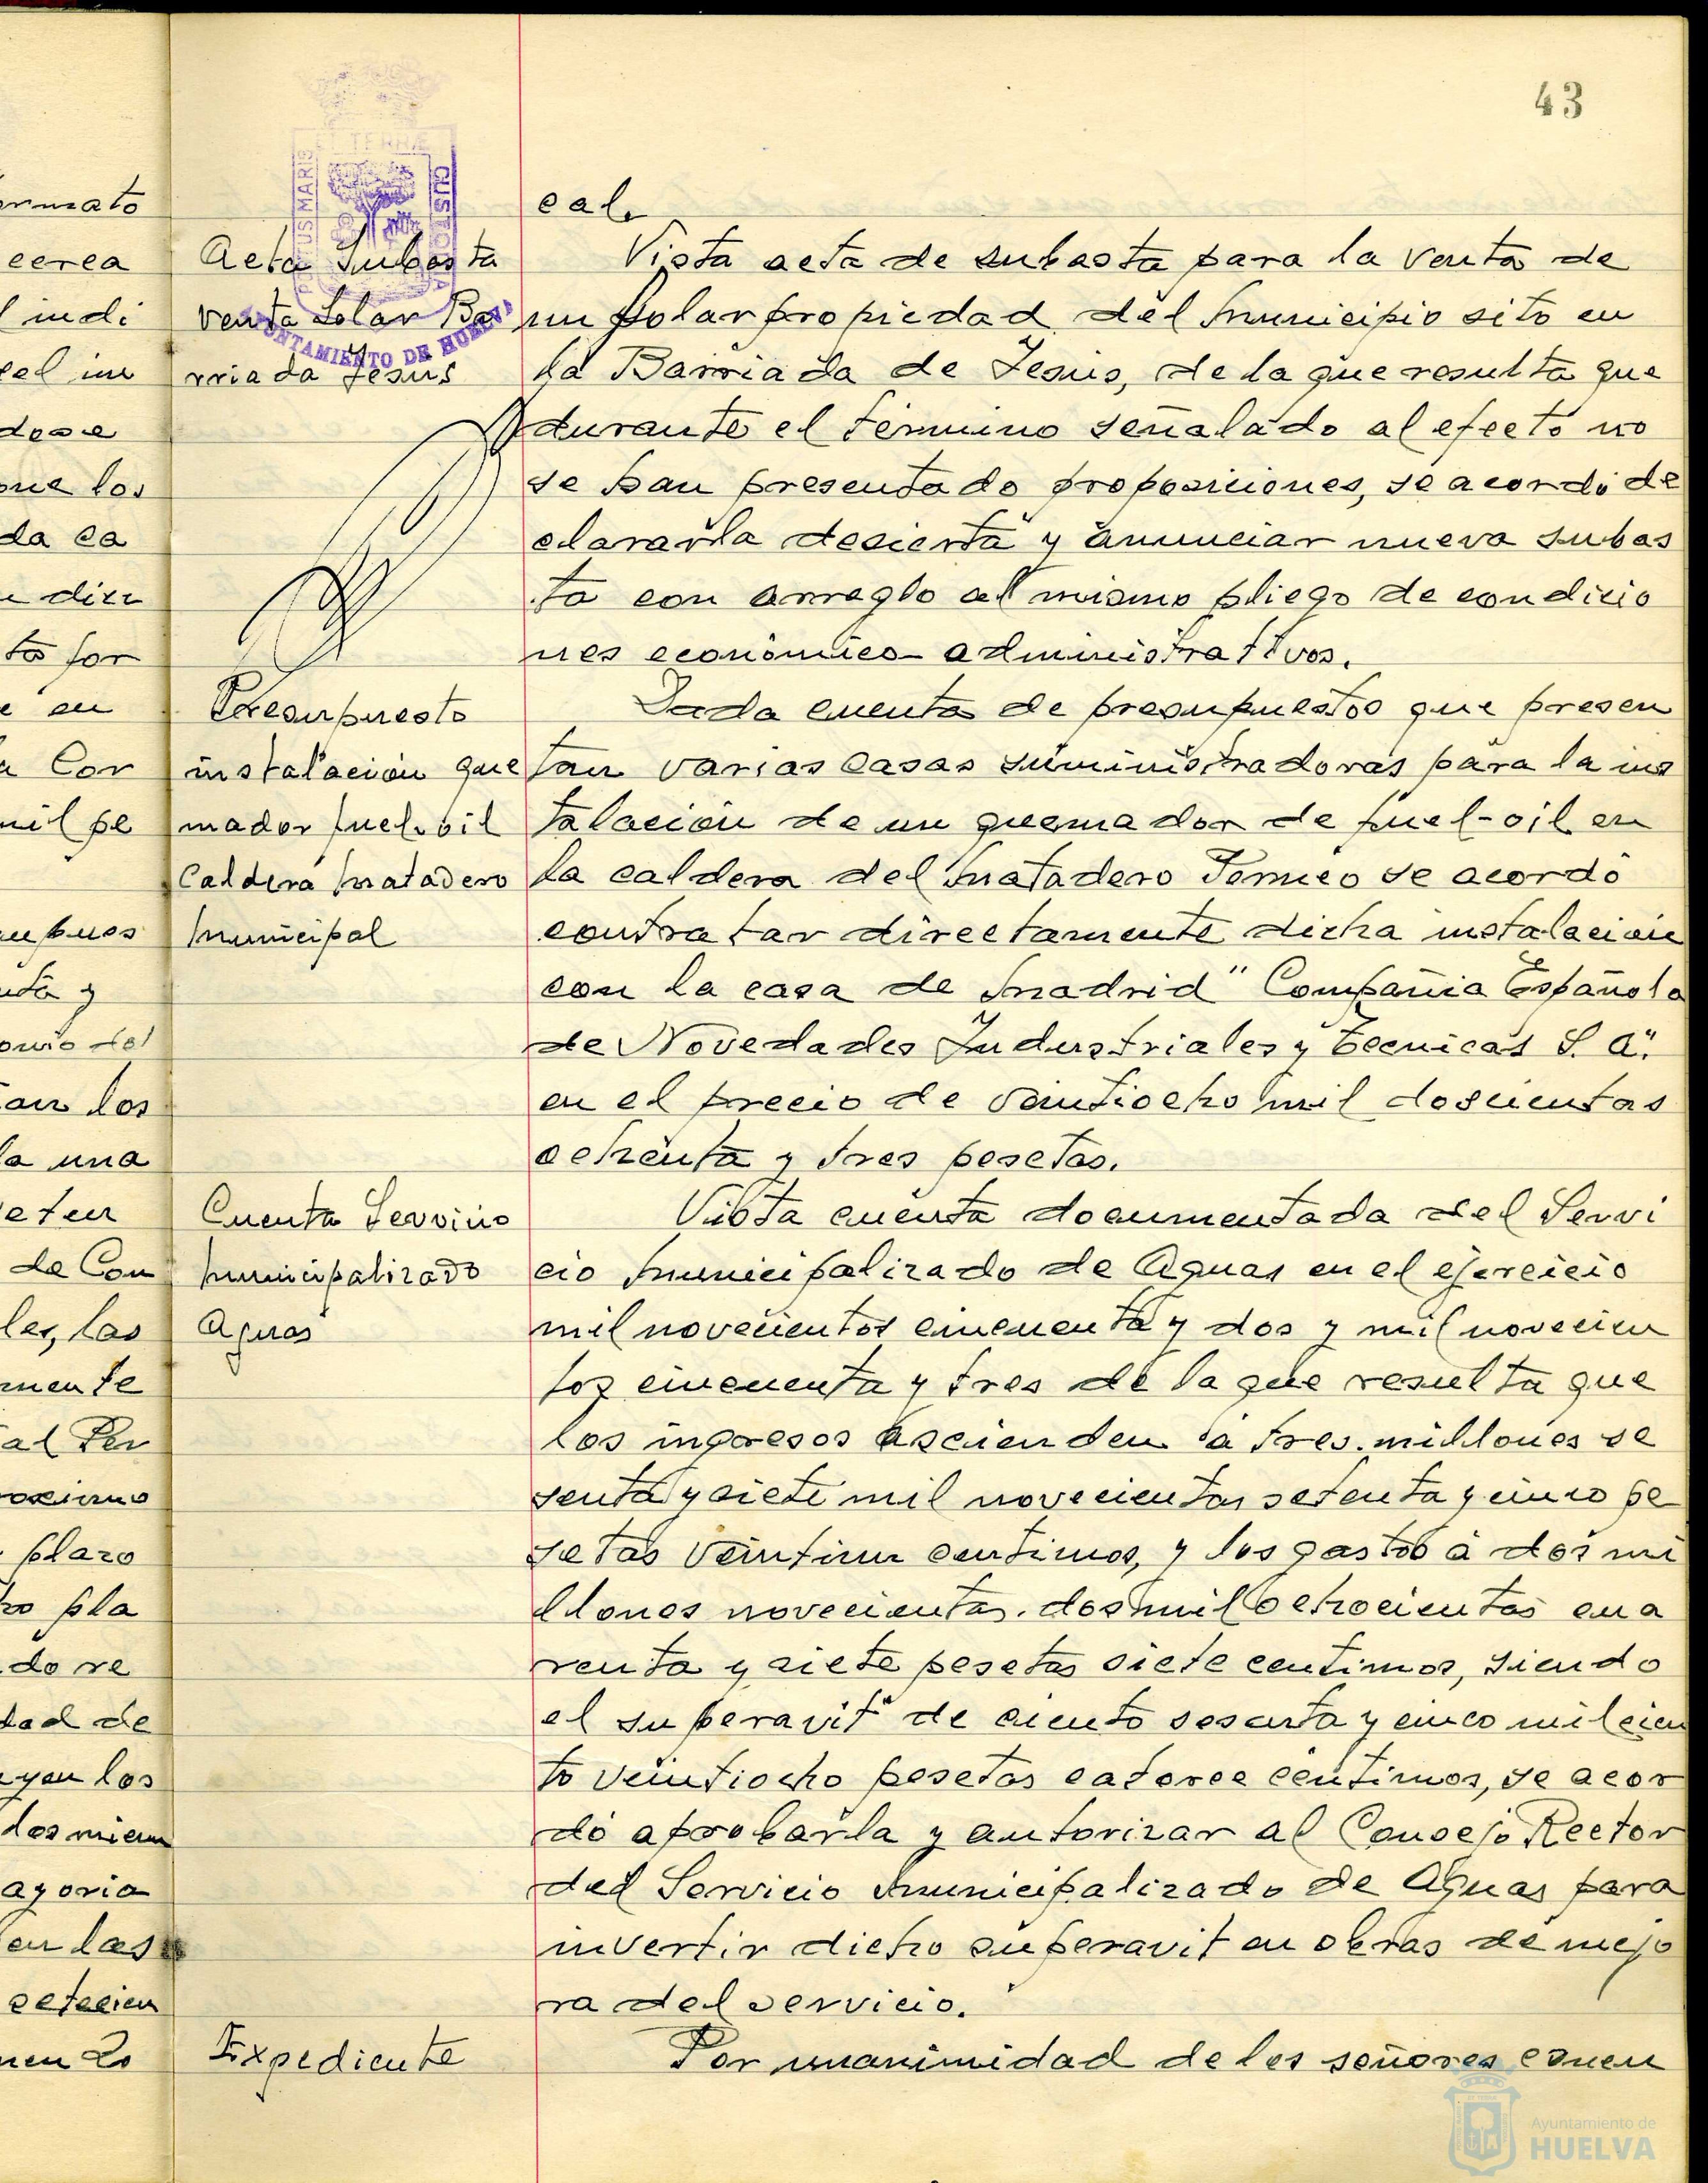 43
ermato
cerca
l indi
que los
da ca
ta for
e en
a Cor
mil pe
upues
nta y
onio del
an los
la una
de Con
les, las
mente
al Per
oximo
plazo
tro pla
do re
dad de
yen los
dos miem
ayoria
en las
setecien
Acta Subasta
venta Solar Ba
rriada Jesús
Presupuesto
instalación que
mador fuel-oil
Caldera Matadero
Municipal
Cuenta Servicio
Municipalizado
Aguas
Expediente
PORTUS MARIS
ET TERRÆ
CUSTODIA
AYUNTAMIENTO DE HUELVA
cal.
Vista acta de subasta para la venta de
un Solar propiedad del Municipio sito en
la Barriada de Jesús, de la que resulta que
durante el término señalado al efecto no
se han presentado proposiciones, se acordó de
clararla desierta y anunciar nueva subas
ta con arreglo al mismo pliego de condicio
nes económico-administrativos.
Dada cuenta de presupuestos que presen
tan varias casas suministradoras para la ins
talación de un quemador de fuel-oil en
la caldera del Matadero Termico se acordó
contratar directamente dicha instalación
con la casa de Madrid "Compañia Española
de Novedades Industriales y Tecnicas S. A".
en el precio de veintiocho mil doscientas
ochenta y tres pesetas.
Vista cuenta documentada del Servi
cio Municipalizado de Aguas en el ejercicio
mil novecientos cincuenta y dos y mil novecien
tos cincuenta y tres de la que resulta que
los ingresos ascienden a tres millones se
senta y siete mil novecientas setenta y cinco pe
setas veintiun centimos, y los gastos a dos mi
llones novecientas dos mil ochocientas cua
renta y siete pesetas siete centimos, siendo
el superavit de ciento sesenta y cinco mil cien
to veintiocho pesetas catorce centimos, se acor
dó aprobarla y autorizar al Consejo Rector
del Servicio Municipalizado de Aguas para
invertir dicho superavit en obras de mejo
ra del servicio.
Por unanimidad de los señores concu
Ayuntamiento de
HUELVA